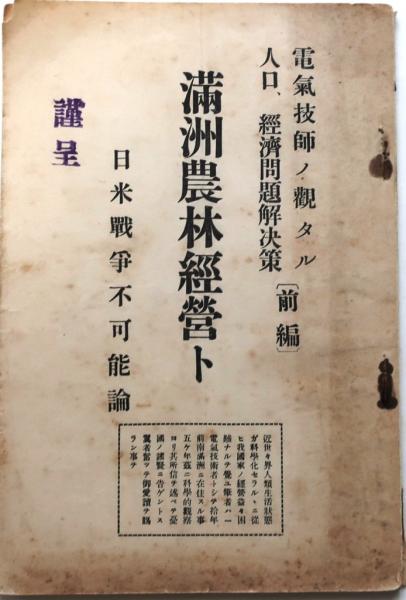 電氣技師ノ觀タル
人口、經濟問題解決策〔前編〕
滿洲農林經營ト
日米戰爭不可能論
謹呈
近世々界人類生活狀態
ガ科學化セラルヽニ從
ヒ我國家ノ經營益々困
難ナルヲ覺ユ筆者ハ一
電氣技術者トシテ拾年
前南滿洲ニ在住スル事
五ケ年茲ニ科學的觀察
ヨリ其所信ヲ述ベテ憂
國ノ諸賢ニ告ゲントス
冀者奮ツテ御愛讀ヲ賜
ラン事ヲ